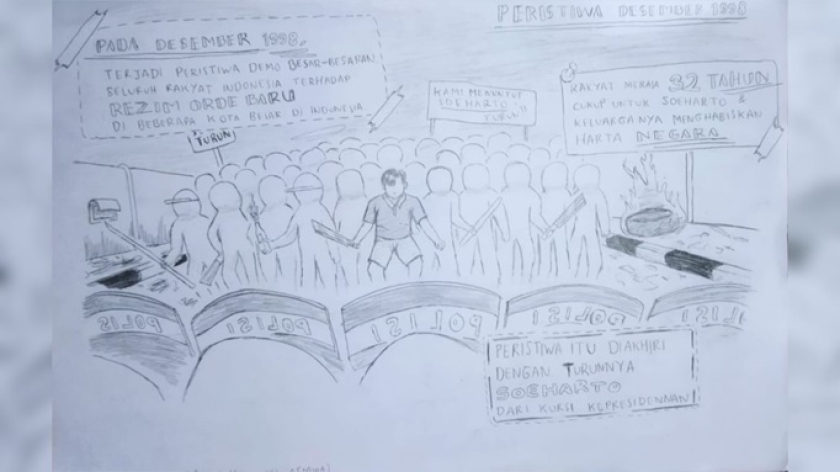 PERISTIWA DESEMBER 1998
PADA DESEMBER 1998,
TERJADI PERISTIWA DEMO BESAR-BESARAN
SELURUH RAKYAT INDONESIA TERHADAP
REZIM ORDE BARU
DI BEBERAPA KOTA BESAR DI INDONESIA
TURUN
KAMI MENUNTUT
SOEHARTO
TURUN
RAKYAT MERASA 32 TAHUN
CUKUP UNTUK SOEHARTO &
KELUARGANYA MENGHABISKAN
HARTA NEGARA
POLISI
POLISI
POLISI
POLISI
POLISI
PERISTIWA ITU DIAKHIRI
DENGAN TURUNNYA
SOEHARTO
DARI KURSI KEPRESIDENAAN